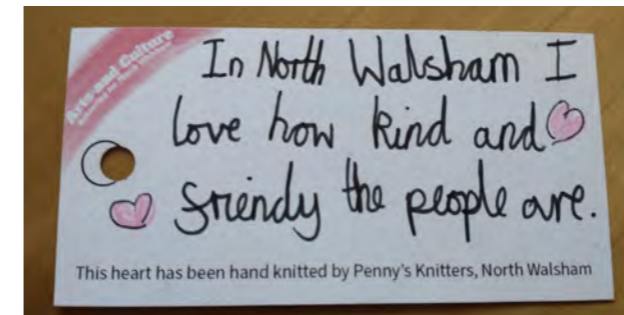 Arts and Culture
In North Walsham I
love how kind and
friendy the people are.
This heart has been hand knitted by Penny's Knitters, North Walsham